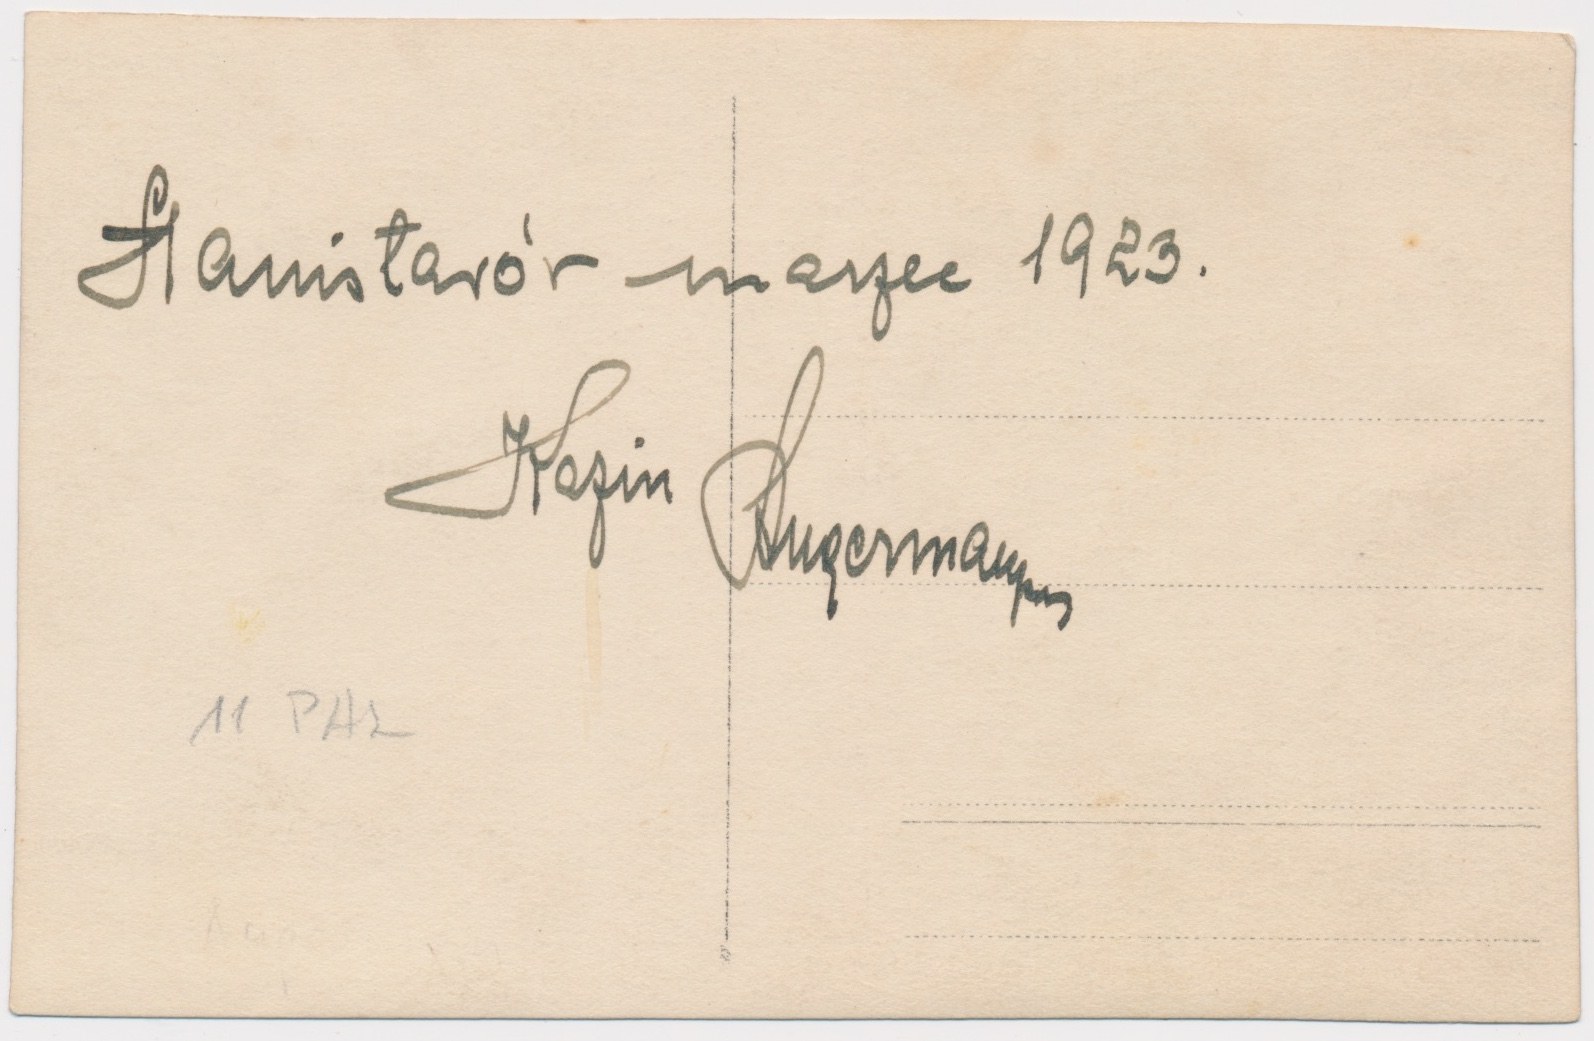 Stanisławów marzec 1923.
Kazin Angermann
11 PAL